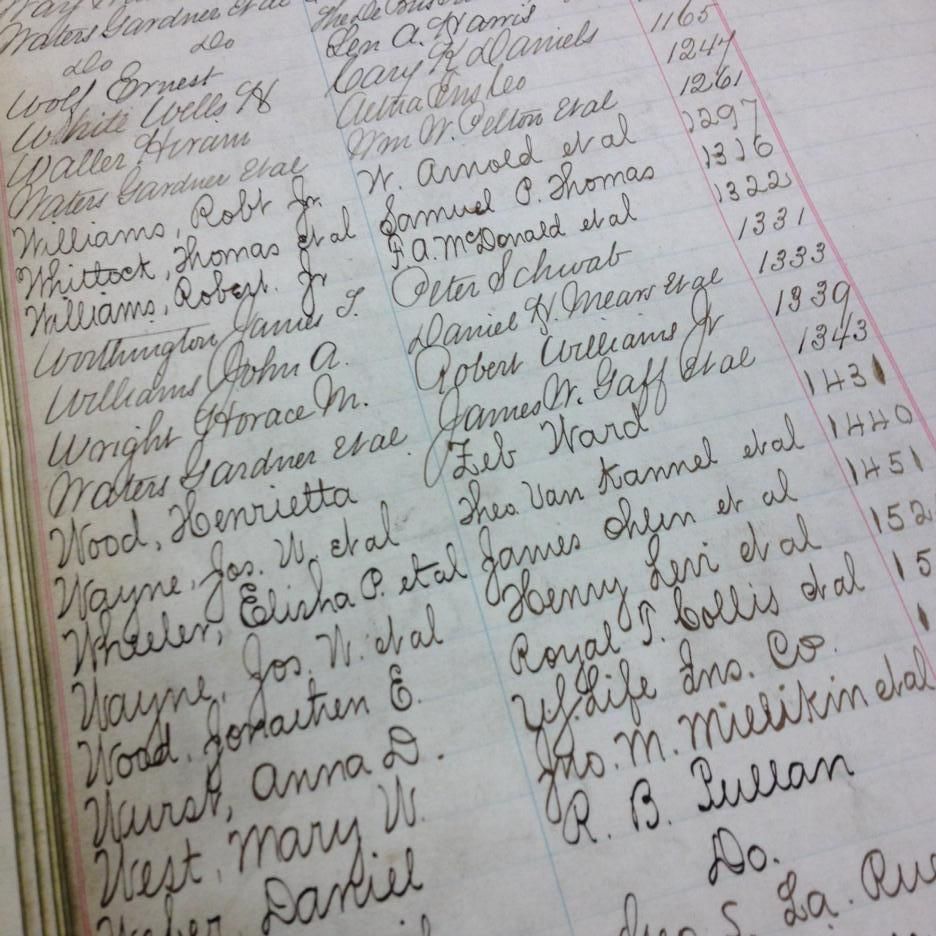 Waters Gardner et al
Do Do Len A. Harris 1165
Wolf Ernest Cary K Daniels 1247
White Wells H Aetna Ins Co 1261
Waller Hiram Wm W. Pelton et al 1297
Waters Gardner et al W. Arnold et al 1316
Williams, Robt Jr. Samuel P. Thomas 1322
Whittock, Thomas et al F. A. McDonald et al 1331
Williams, Robert. Jr Peter Schwab 1333
Worthington James T. Daniel H. Mears et al 1339
Williams John A. Robert Williams Jr 1343
Wright Horace M. James W. Gaff et al 1431
Waters Gardner et al. Zeb Ward 1440
Wood, Henrietta Theo Van Kannel et al 1451
Wayne, Jos. W. et al James et al 152
Wheeler, Elisha P. et al Henry Levi et al 15
Wayne, Jos. W. et al Royal T. Collis et al
Wood, E. Life Ins. Co.
Wurst, Anna D. Jno. M. Millikin et al
West, Mary W. R. B. Pullan
Daniel Do.
S. La. Rue